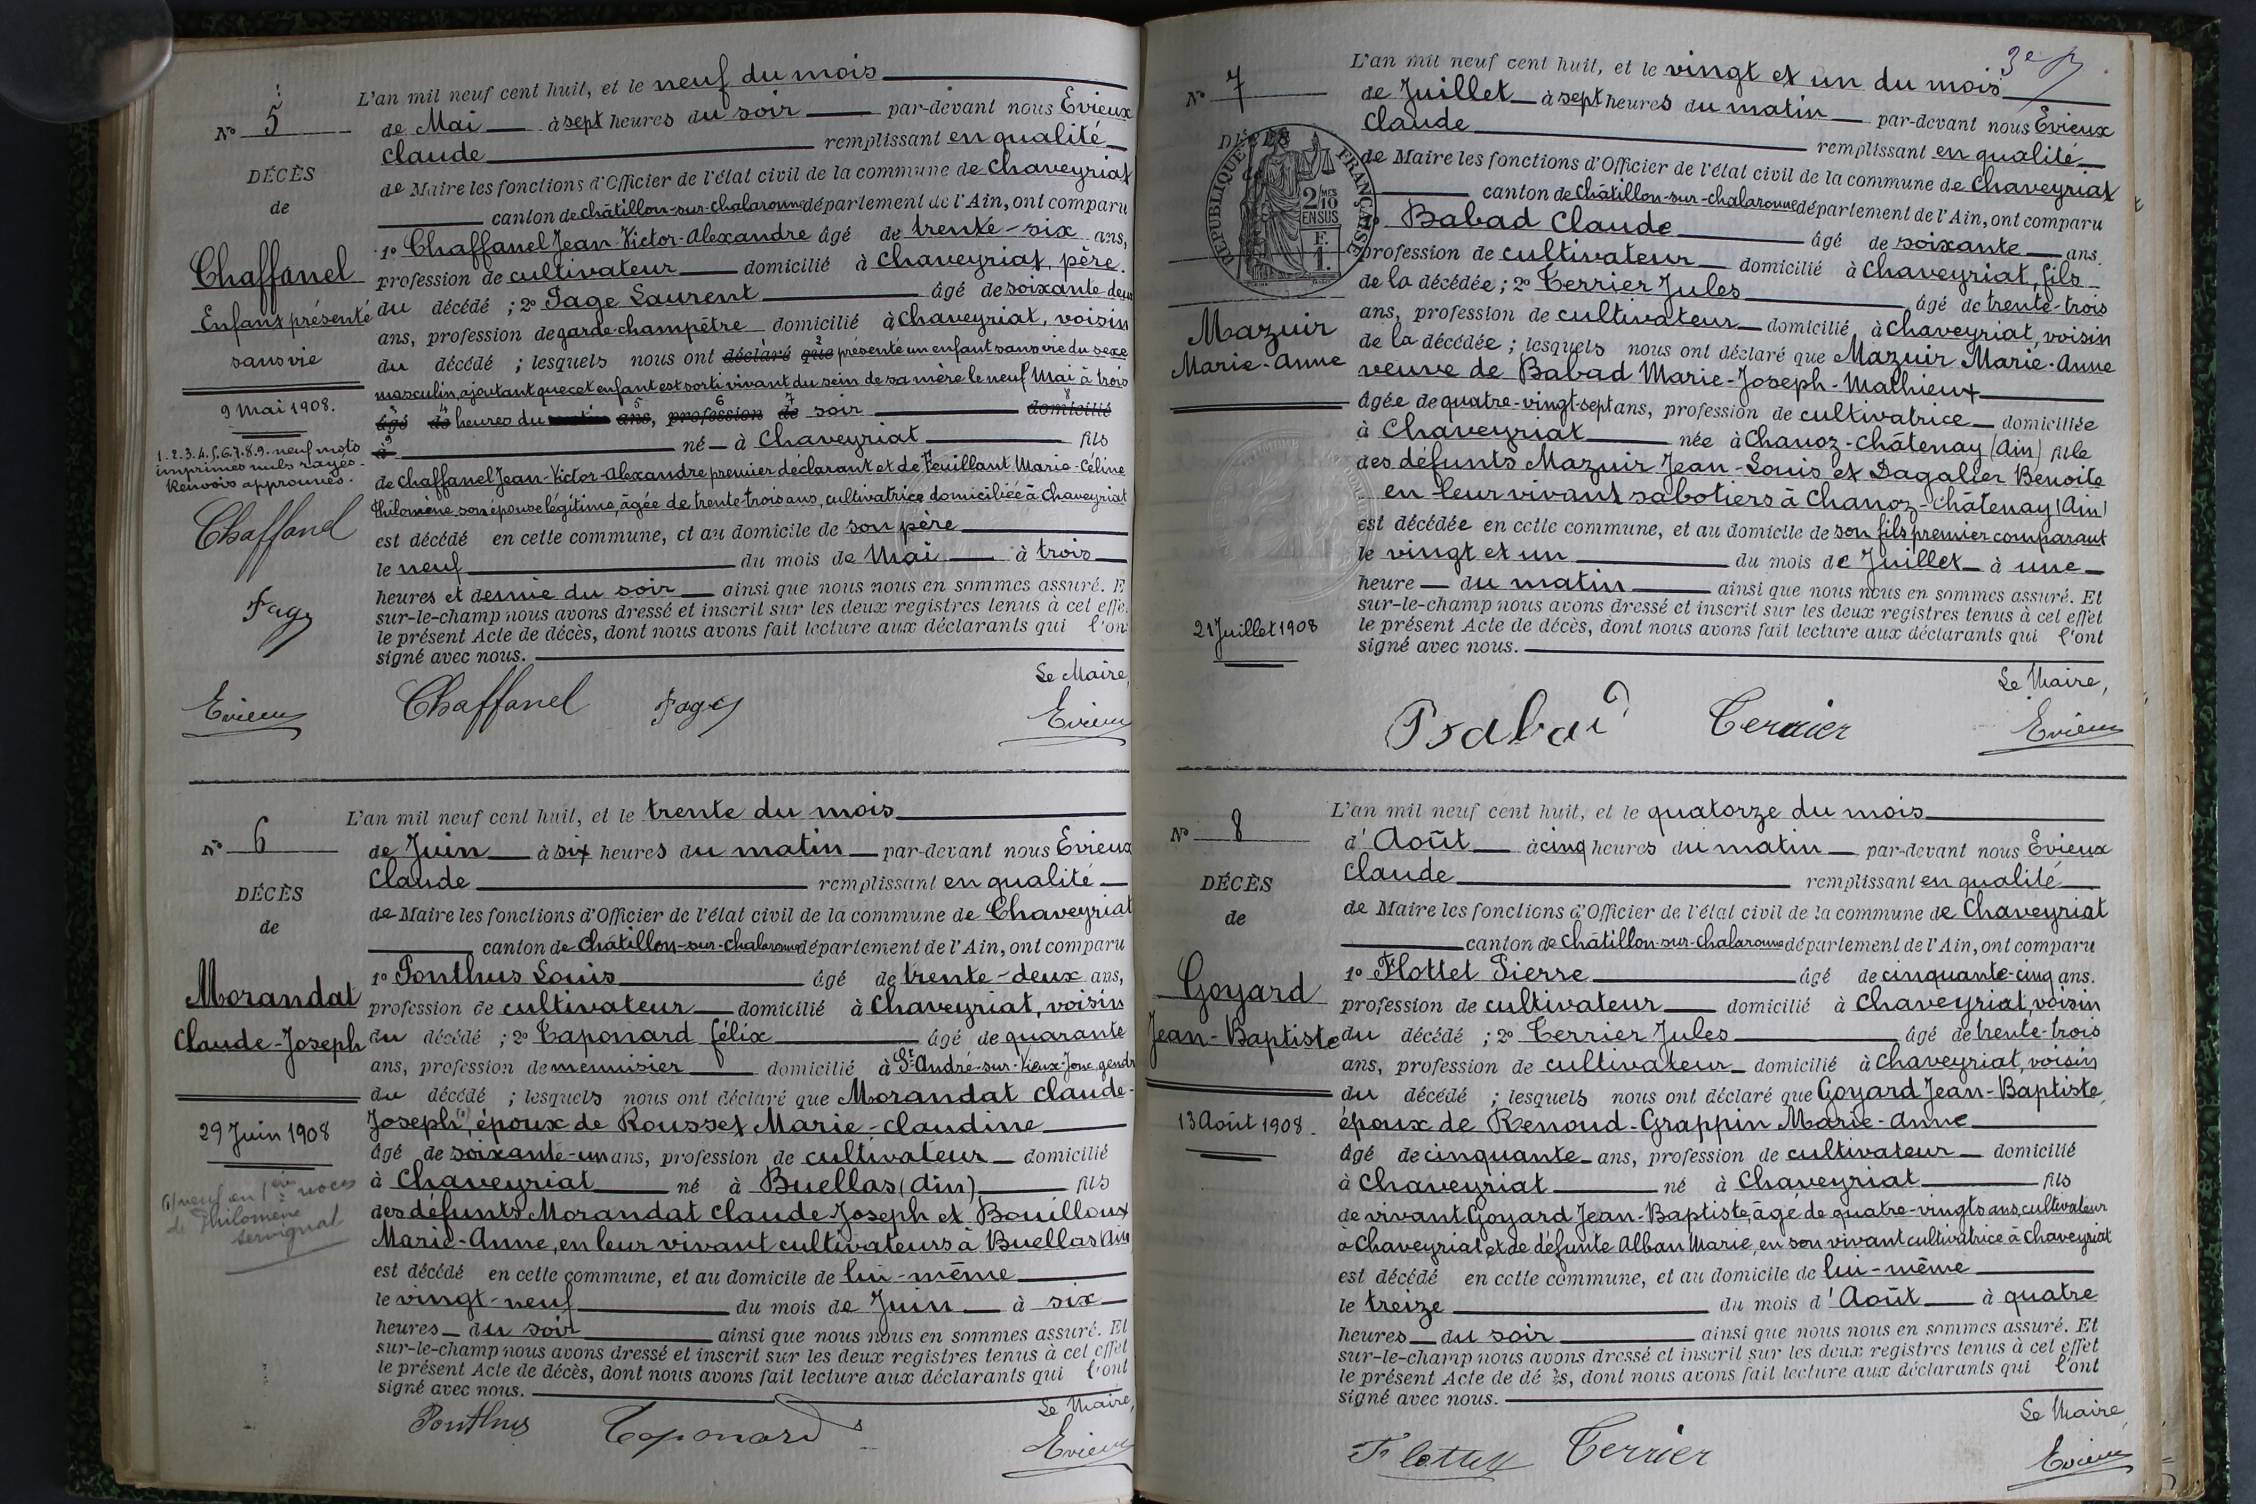 N° 5
DÉCÈS
de
Chaffanel
Enfant présenté
sans vie
9 Mai 1908.
1.2.3.4.5.6.7.8.9. neuf mots
imprimés nuls rayés.
Renvois approuvés.
Chaffanel
Fage
Evieux
L'an mil neuf cent huit, et le neuf du mois
de Mai à sept heures du soir par-devant nous Evieux
Claude remplissant en qualité
de Maire les fonctions d'Officier de l'état civil de la commune de Chaveyriat
canton de Châtillon-sur-Chalaronne département de l'Ain, ont comparu
1° Chaffanel Jean-Victor-Alexandre âgé de trente-six ans,
profession de cultivateur domicilié à Chaveyriat, père
du décédé ; 2° Fage Laurent âgé de soixante-deux
ans, profession de garde-champêtre domicilié à Chaveyriat, voisin
du décédé ; lesquels nous ont déclaré que présenté un enfant sans vie du sexe
masculin, ajoutant que cet enfant est sorti vivant du sein de sa mère le neuf Mai à trois
âgé de heures du ans, profession de soir domicilié
à né à Chaveyriat fils
de Chaffanel Jean-Victor-Alexandre premier déclarant et de Feuillant Marie-Céline
Philomène son épouse légitime, âgée de trente trois ans, cultivatrice domiciliée à Chaveyriat
est décédé en cette commune, et au domicile de son père
le neuf du mois de Mai à trois
heures et demie du soir ainsi que nous nous en sommes assuré. E
sur-le-champ nous avons dressé et inscrit sur les deux registres tenus à cet effe
le présent Acte de décès, dont nous avons fait lecture aux déclarants qui l'on
signé avec nous.
Le Maire,
Chaffanel Fage Evieux
N° 6
DÉCÈS
de
Morandat
Claude-Joseph
29 Juin 1908
(1) veuf en 1ères noces
de Philomène
Servignat
L'an mil neuf cent huit, et le trente du mois
de Juin à six heures du matin par-devant nous Evieux
Claude remplissant en qualité
de Maire les fonctions d'Officier de l'état civil de la commune de Chaveyriat
canton de Châtillon-sur-Chalaronne département de l'Ain, ont comparu
1° Ponthus Louis âgé de trente-deux ans,
profession de cultivateur domicilié à Chaveyriat, voisin
du décédé ; 2° Taponard félix âgé de quarante
ans, profession de menuisier domicilié à St-André-sur-Vieux-Jonc, gendre
du décédé ; lesquels nous ont déclaré que Morandat Claude-
Joseph (1), époux de Rousset Marie-Claudine
âgé de soixante-un ans, profession de cultivateur domicilié
à Chaveyriat né à Buellas (Ain) fils
des défunts Morandat Claude Joseph et Bouilloux
Marie-Anne, en leur vivant cultivateurs à Buellas Ain
est décédé en cette commune, et au domicile de lui-même
le vingt-neuf du mois de Juin à six
heures du soir ainsi que nous nous en sommes assuré. Et
sur-le-champ nous avons dressé et inscrit sur les deux registres tenus à cet effet
le présent Acte de décès, dont nous avons fait lecture aux déclarants qui l'ont
signé avec nous.
Le Maire,
Ponthus Taponard Evieux
3e
N° 7
DÉCÈS
RÉPUBLIQUE FRANÇAISE
2/10 MES
EN SUS
F.
1.
Mazuir
Marie-Anne
21 Juillet 1908
L'an mil neuf cent huit, et le vingt et un du mois
de Juillet à sept heures du matin par-devant nous Evieux
Claude remplissant en qualité
de Maire les fonctions d'Officier de l'état civil de la commune de Chaveyriat
canton de Châtillon-sur-Chalaronne département de l'Ain, ont comparu
1° Babad Claude âgé de soixante ans,
profession de cultivateur domicilié à Chaveyriat, fils
de la décédée ; 2° Terrier Jules âgé de trente-trois
ans, profession de cultivateur domicilié à Chaveyriat, voisin
de la décédée ; lesquels nous ont déclaré que Mazuir Marie-Anne
veuve de Babad Marie-Joseph-Mathieux
âgée de quatre-vingt-sept ans, profession de cultivatrice domiciliée
à Chaveyriat née à Chanoz-Châtenay (Ain) fille
des défunts Mazuir Jean-Louis et Dagallier Benoite
en leur vivant sabotiers à Chanoz-Châtenay (Ain)
est décédée en cette commune, et au domicile de son fils premier comparant
le vingt et un du mois de Juillet à une
heure du matin ainsi que nous nous en sommes assuré. Et
sur-le-champ nous avons dressé et inscrit sur les deux registres tenus à cet effet
le présent Acte de décès, dont nous avons fait lecture aux déclarants qui l'ont
signé avec nous.
Le Maire,
Babad Terrier Evieux
N° 8
DÉCÈS
de
Goyard
Jean-Baptiste
13 Août 1908.
L'an mil neuf cent huit, et le quatorze du mois
d'Août à cinq heures du matin par-devant nous Evieux
Claude remplissant en qualité
de Maire les fonctions d'Officier de l'état civil de la commune de Chaveyriat
canton de Châtillon-sur-Chalaronne département de l'Ain, ont comparu
1° Flottet Pierre âgé de cinquante-cinq ans.
profession de cultivateur domicilié à Chaveyriat, voisin
du décédé ; 2° Terrier Jules âgé de trente-trois
ans, profession de cultivateur domicilié à Chaveyriat, voisin
du décédé ; lesquels nous ont déclaré que Goyard Jean-Baptiste,
époux de Renoud-Grappin Marie-Anne
âgé de cinquante ans, profession de cultivateur domicilié
à Chaveyriat né à Chaveyriat fils
de vivant Goyard Jean-Baptiste, âgé de quatre-vingts ans, cultivateur
à Chaveyriat et de défunte Alban Marie, en son vivant cultivatrice à Chaveyriat
est décédé en cette commune, et au domicile de lui-même
le treize du mois d'Août à quatre
heures du soir ainsi que nous nous en sommes assuré. Et
sur-le-champ nous avons dressé et inscrit sur les deux registres tenus à cet effet
le présent Acte de décès, dont nous avons fait lecture aux déclarants qui l'ont
signé avec nous.
Le Maire,
Flottet Terrier Evieux